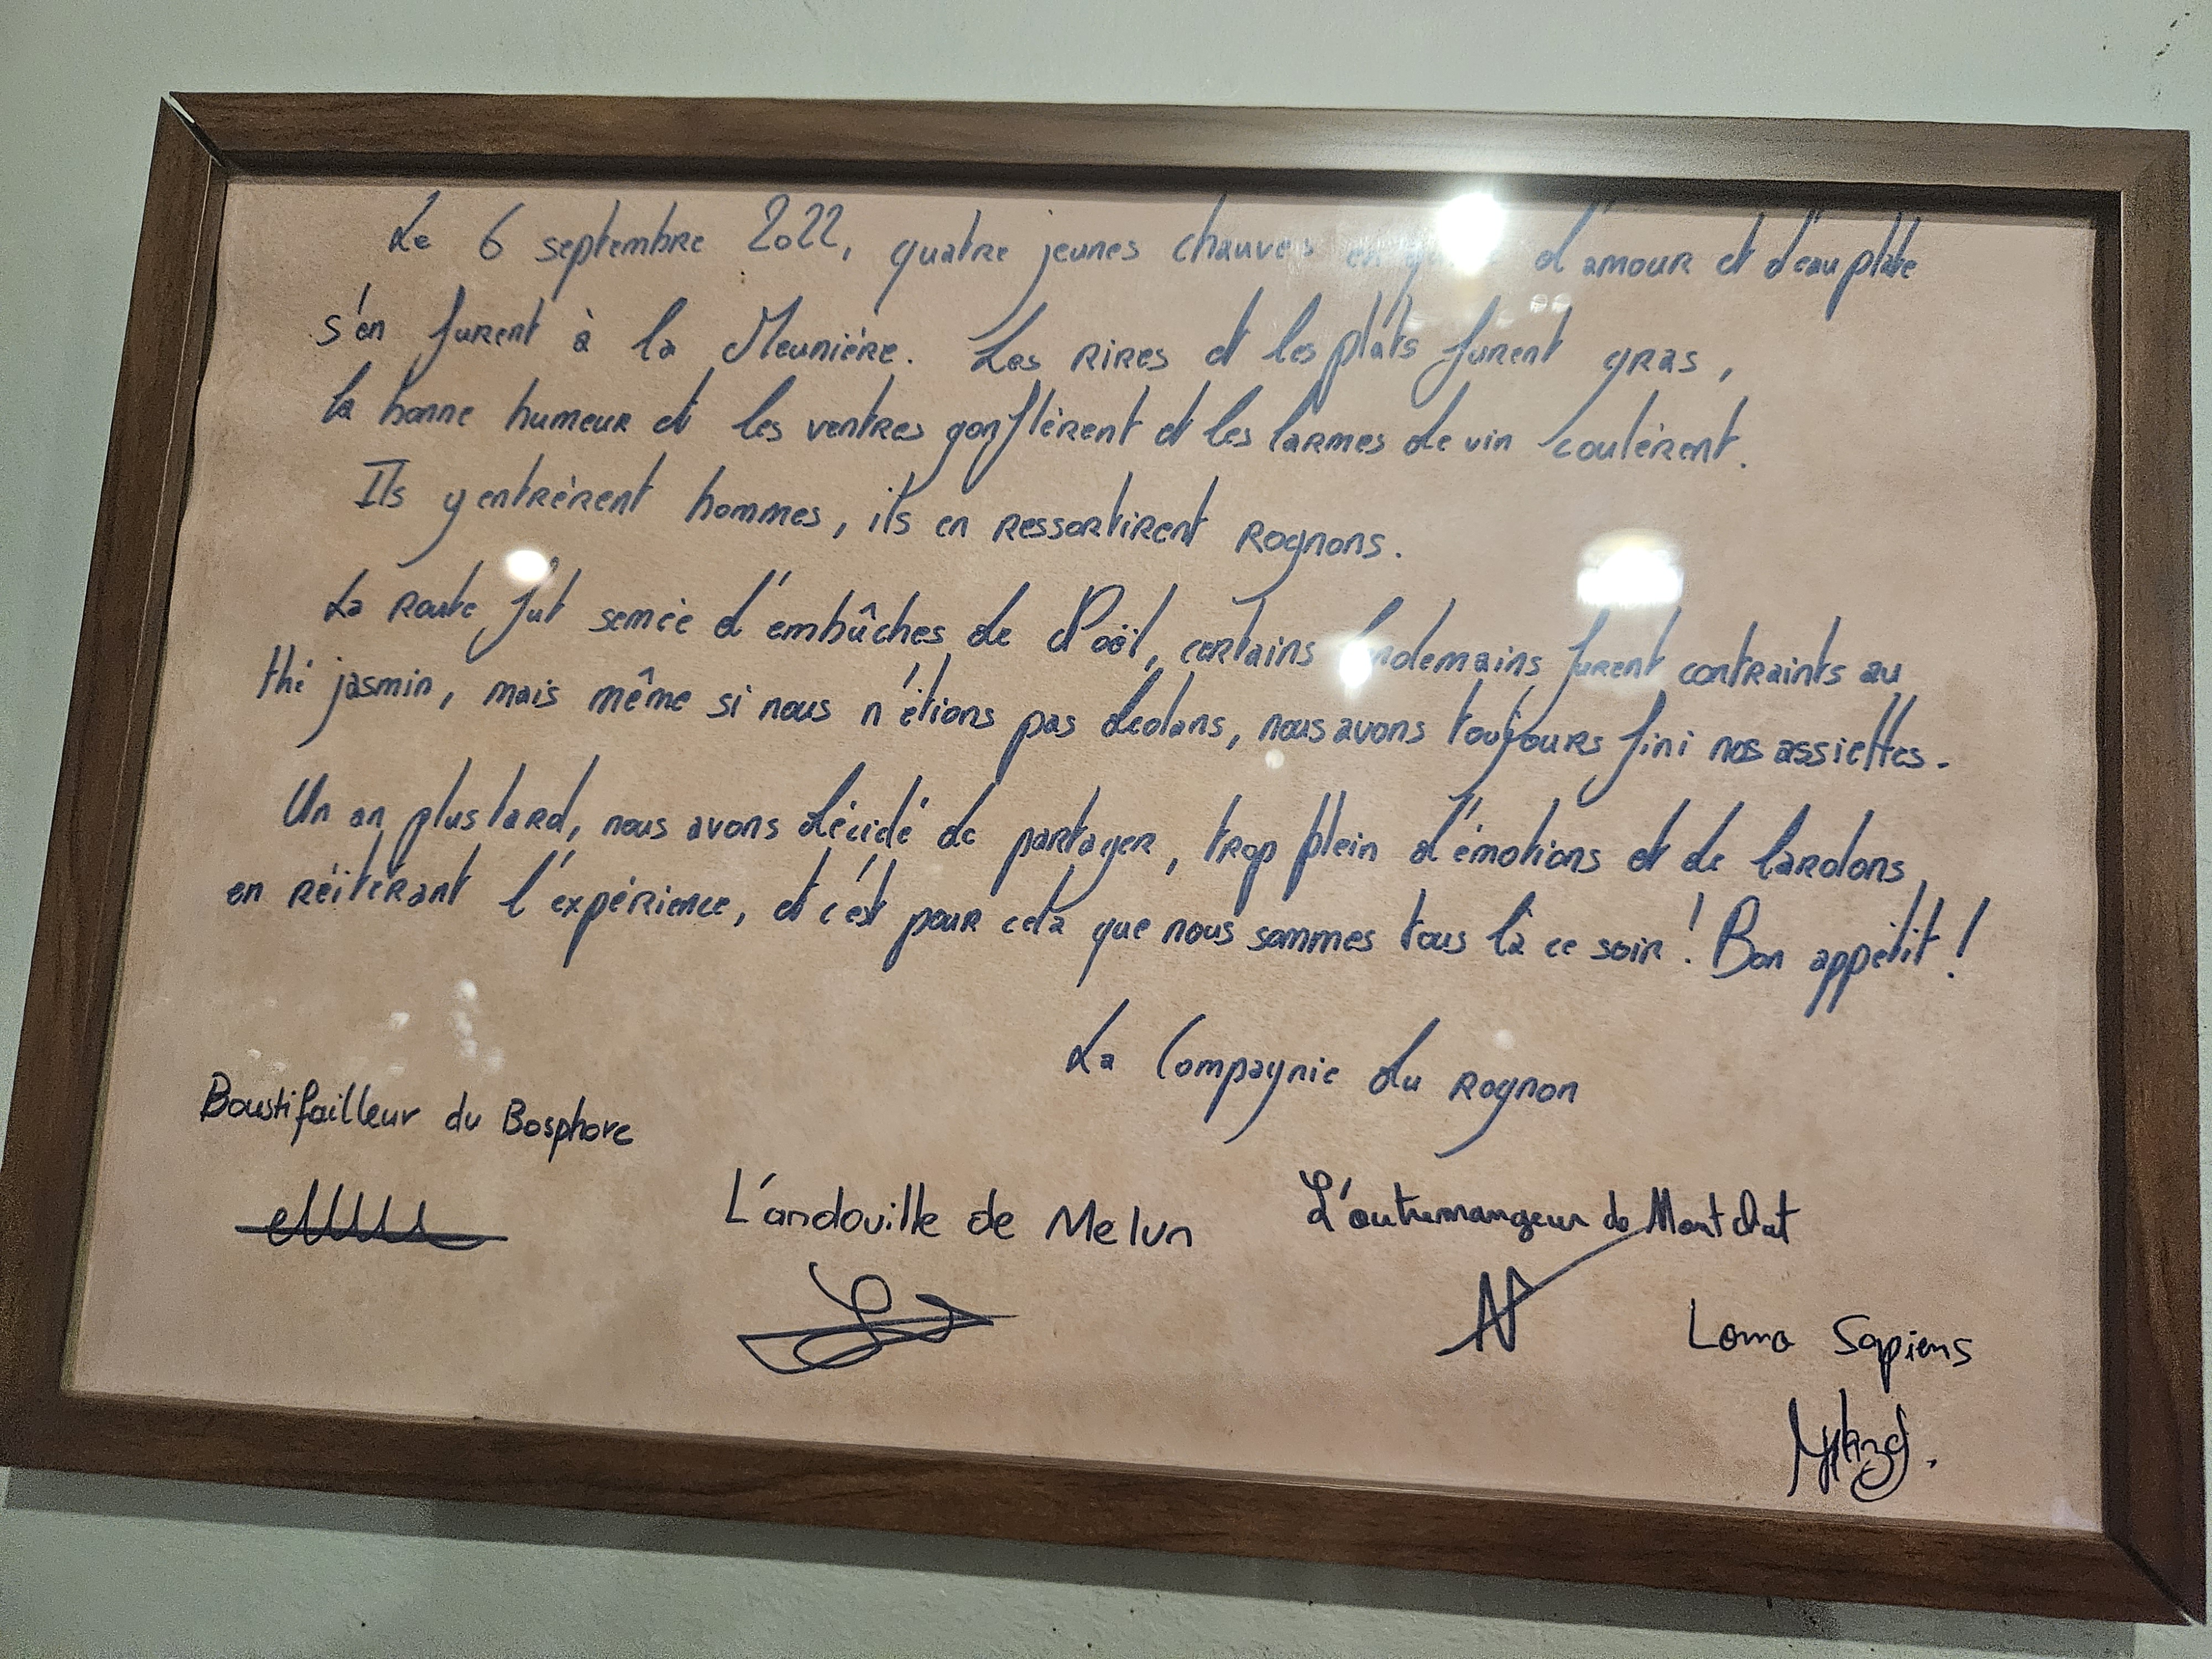 Le 6 septembre 2022, quatre jeunes chauves en d'amour et d'eau plate
s'en furent à la Meunière. Les rires et les plats furent gras,
la bonne humeur et les ventres gonflèrent et les larmes de vin coulèrent.
Ils y entrèrent hommes, ils en ressortirent rognons.
La route fut semée d'embûches de Poöl, certains lendemains furent contraints au
thé jasmin, mais même si nous n'étions pas dedans, nous avons toujours fini nos assiettes.
Un an plus tard, nous avons décidé de partager, trop plein d'émotions et de lardons,
en réitérant l'expérience, et c'est pour cela que nous sommes tous là ce soir ! Bon appétit !
La Compagnie du Rognon
Boustifailleur du Bosphore
L'andouille de Melun
L'outremangeur de Montchat
Lomo Sapiens